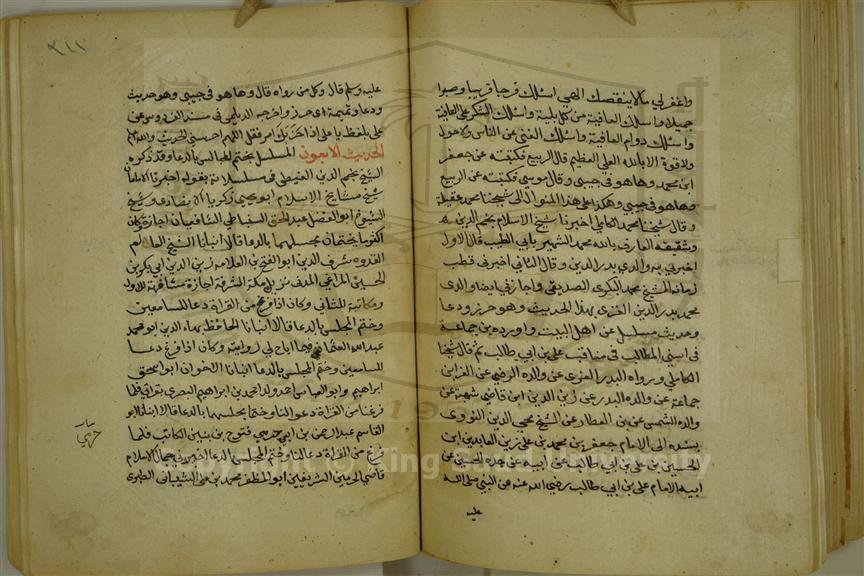 واغفر لي ما لا ينقصك الهي اسئلك فرجا قريبا وصبرا
جميلا واسئلك العافية من كل بلية واسئلك الشكر على العافية
واسئلك دوام العافية واسئلك الغنى عن الناس ولا حول
ولا قوة الا بالله العلي العظيم قال الربيع فكتبته عن جعفر
ابن محمد وها هو في جيبي وقال موسى فكتبته عن الربيع
وها هو في جيبي وهكذا على هذا المنوال الى شيخنا محمد عقيلة
وقال شيخنا محمد الكاملي اخبرنا شيخ الاسلام نجم الدين
وشقيقه العارف بالله محمد الشهير بابي الطيب قال الاول
اخبرني به والدي بدر الدين وقال الثاني اخبرني قطب
زمانه الشيخ محمد البكري الصديقي واجازني ايضا والدي
محمد بدر الدين الغزي بهذا الحديث وهو حرز ودعا
وحديث مسلسل عن اهل البيت واورده بن جماعة
في اسنى المطالب في مناقب علي بن ابي طالب ثم قال شيخنا
الكاملي ورواه البدر الغزي عن والده الرضي عن العز ابن
جماعة عن والده البدر عن زين الدين ابن قاضي شهبة عن
والده الشمس عن بن العطار عن الشيخ محيي الدين النووي
بسنده الى الامام جعفر بن محمد بن علي زين العابدين ابن
الحسين بن علي بن ابي طالب عن ابيه عن جده الحسين عن
ابيه الامام علي بن ابي طالب رضي الله عنه عن النبي صلى الله
عليه
٣١١
عليه وسلم قال وكل من رواه قال وها هو في جيبي وهو حديث
ودعا وتميمة اي حرز واخرجه الديلمي في مسند الفردوس عن
علي بلفظ يا علي اذا حزبك امر فقل اللهم احرسني الحديث والله اعلم
الحديث الاربعون المسلسل بختم المجالس بالدعا وقد ذكره
الشيخ نجم الدين الغيطي في مسلسلاته بقوله اخبرنا الامامان
شيخ مشايخ الاسلام ابو يحيى زكريا الانصاري وشيخ
الشيوخ ابو الفضل عبد الحق السنباطي الشافعيان اجازة وكان
اكثر ما يختمان مجلسهما بالدعا قالا انبانا الشيخ العالم
القدوة شرف الدين ابو الفتح بن العلامة زين الدين ابي بكر بن
الحسين المراغي المدني نزيل مكة المشرفة اجازة مشافهة للاول
ومكاتبة للثاني وكان اذا فرغ من القراة دعا للسامعين
وختم المجلس بالدعا قالا انبانا الحافظ بهاء الدين ابو محمد
عبد الله العثماني فيما اباح لي روايته وكان اذا فرغ دعا
للسامعين وختم المجلس بالدعا انبانا الاخوان ابو اسحق
ابراهيم وابو العباس احمد ولدا محمد بن ابراهيم الطبري بقراتي فلما
فرغنا من القراة دعوا لنا وختما مجلسهما بالدعا قالا انبانا ابو
القاسم عبد الرحمن بن ابي حرمي فتوح بن بنين الكاتب فلما
فرغ من القراة دعا لنا وختم المجلس بالدعا اخبرني جمال الاسلام
قاضي الحرمين الشريفين ابو المظفر محمد بن علي الشيباني الطبري
حرمي
Copyright © King Saud University